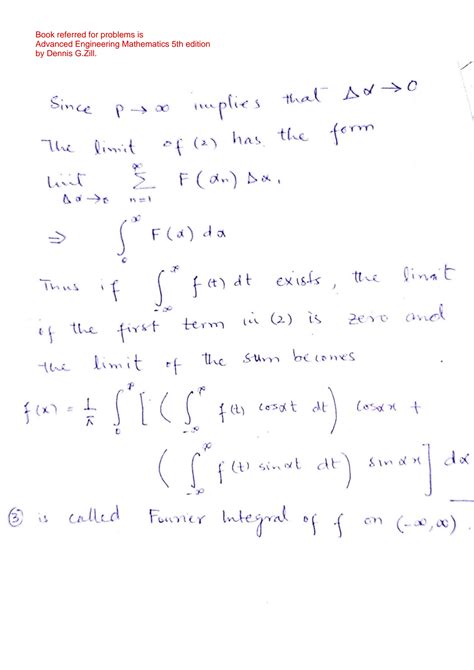 Book referred for problems is
Advanced Engineering Mathematics 5th edition
by Dennis G.Zill.
Since p → ∞ implies that Δα → 0
The limit of (2) has the form
limit Δα→0 ∞ Σ n=1 F(αn) Δα,
⇒ ∫₀^∞ F(α) dα
Thus if ∫₋∞^∞ f(t) dt exists, the limit
of the first term in (2) is zero and
the limit of the sum becomes
f(x) = 1/π ∫₀^∞ [ ( ∫₋∞^∞ f(t) cosαt dt ) cosαx +
( ∫₋∞^∞ f(t) sinαt dt ) sinαx ] dα
③ is called Fourier Integral of f on (-∞,∞).